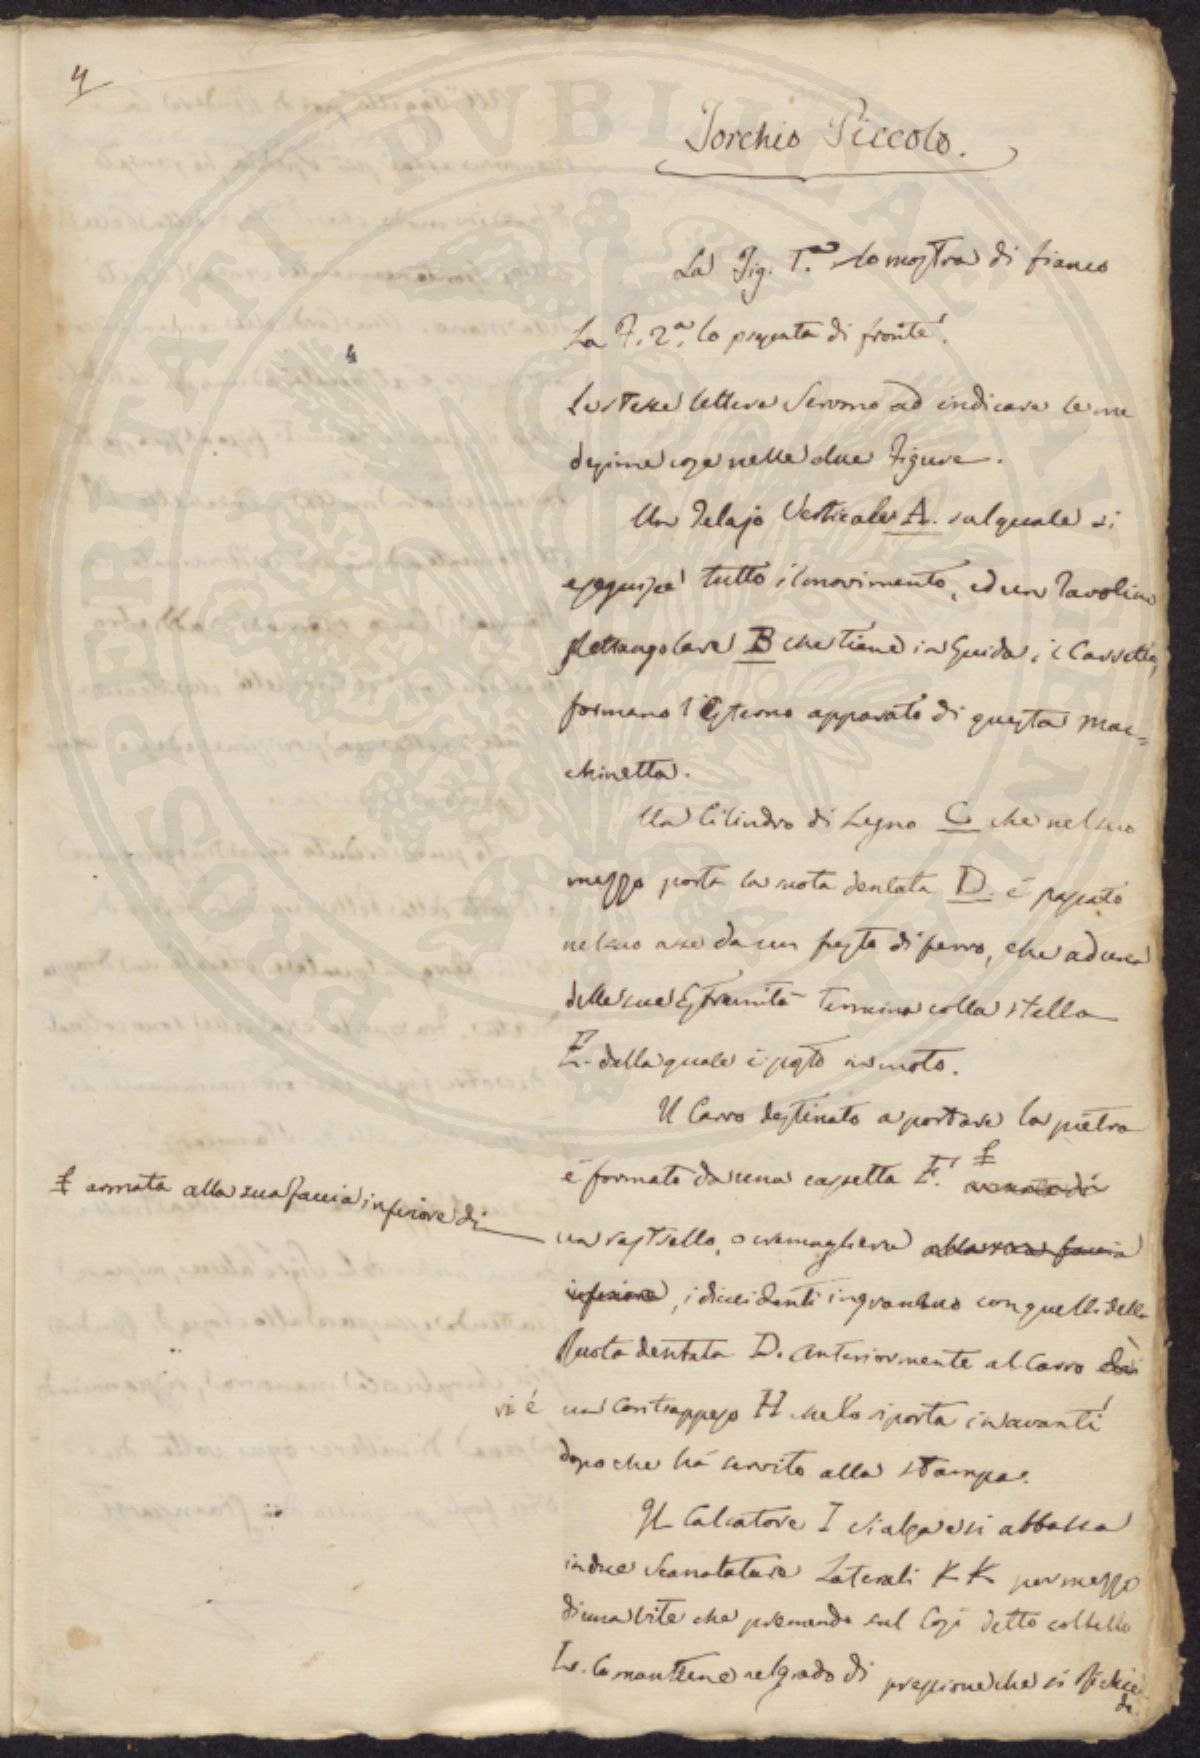 4
Torchio Piccolo.
La Fig. 1.a lo mostra di fianco
La F. 2.a lo presenta di fronte.
Le stesse lettere servono ad indicare le me
desime cose nelle due Figure.
Un Telajo Verticale A. sul quale si
eseguisce tutto il movimento, ed un Tavolino
Rettangolare B che tiene in Guida, il Carretto,
formano l'Esterno apparato di questa Mac=
chinetta.
Un Cilindro di Legno C. che nel suo
mezzo porta la ruota dentata D. è passato
nel suo asse da un di ferro, che ad una
delle sue Estremità termina colla stella
E. dalla quale è posto in moto.
Il Carro destinato a portare la pietra
è formato da una cassetta F.
armata alla sua faccia inferiore di
un rastrello, o cremagliera alla sua faccia
inferiore, i di cui denti ingranano con quelli della
Ruota dentata D. Anteriormente al Carro
vi è un Contrappeso H che lo riporta in avanti
dopo che ha servito alla stampa.
Il Calcatore I si alza e si abbassa
in due Scanalature Laterali K K per mezzo
di una vite che premendo sul Così detto coltello
L. lo mantiene nel grado di pressione che si Richie
de
PROSPERITATI PVBLICAE AVGENDAE